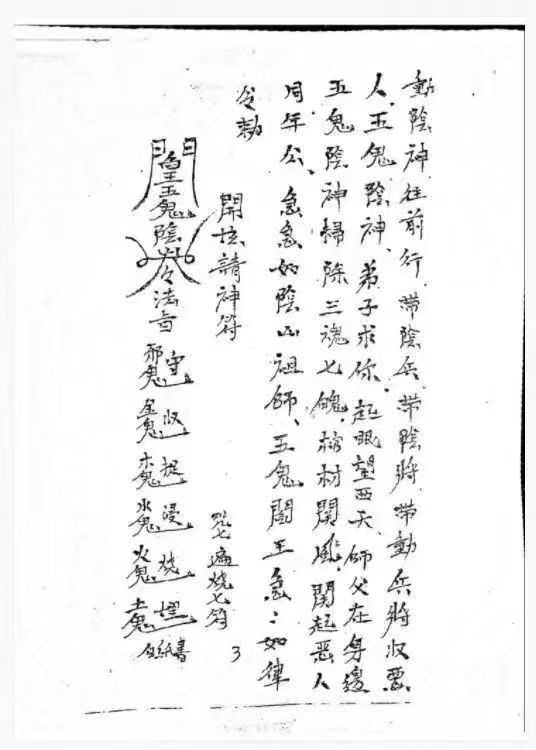 動陰神往前行、帶陰兵、帶陰將、帶動兵將收惡
人、五鬼陰神、弟子求你、起眼望西天、師父在身邊
五鬼陰神掃除三魂七魄、棺材關鳳、關起惡人
同年公、急急如陰山祖師、五鬼閻王急：如律
令勅
開壇請神符
咒七遍燒七符
3
五鬼陰
令法旨
邪鬼守
金鬼收
木鬼捉
水鬼浸
火鬼燒
土鬼埋
白紙書